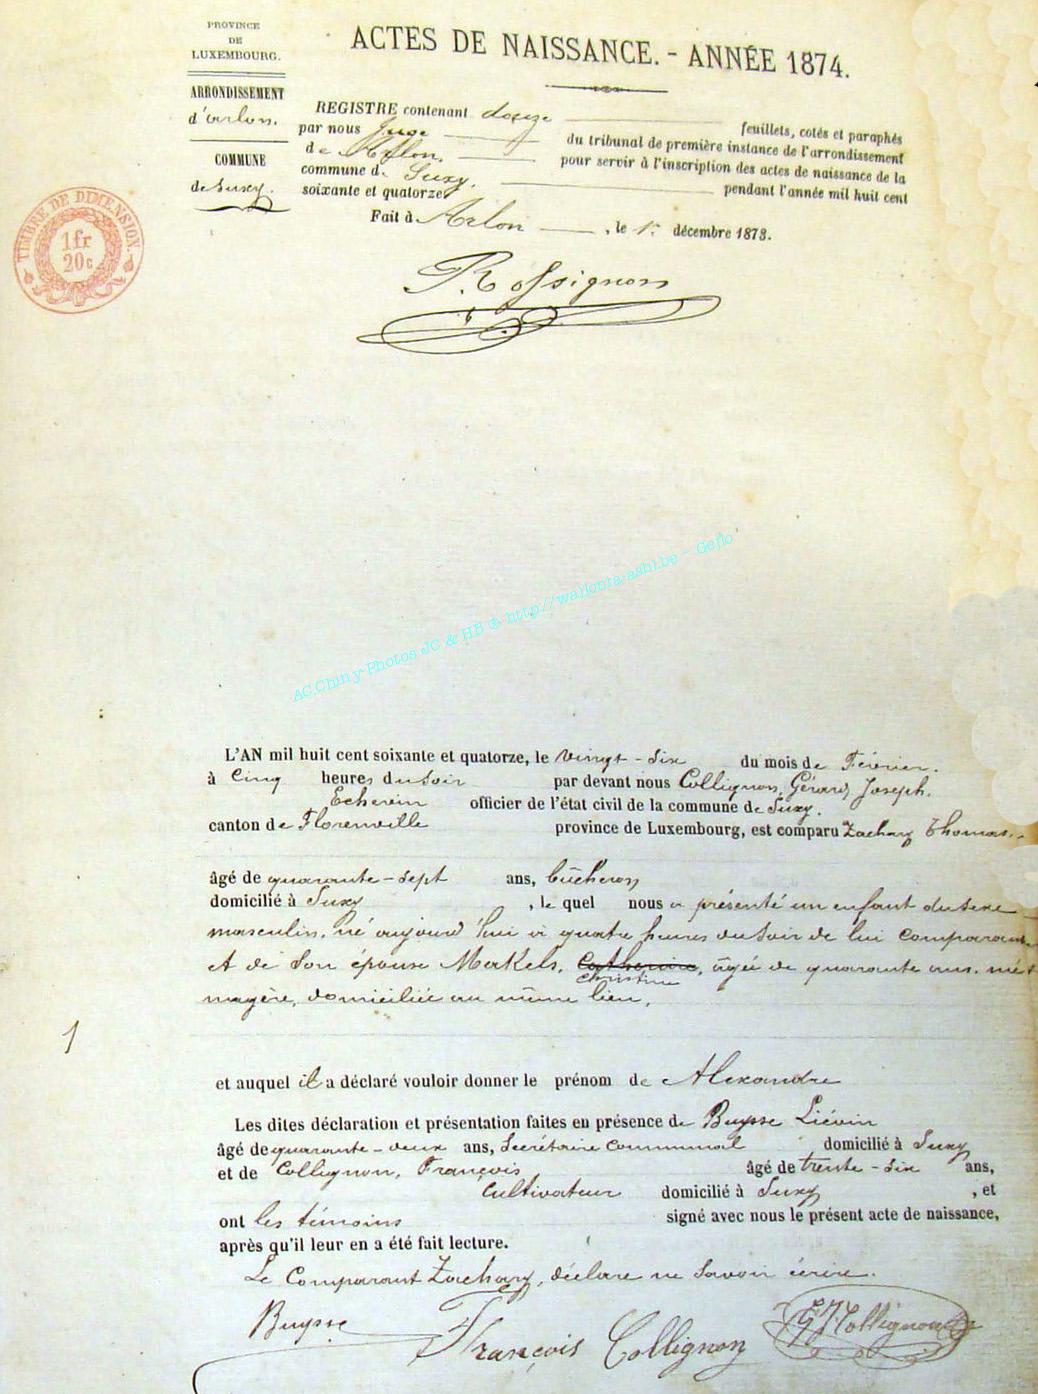 PROVINCE
DE
LUXEMBOURG.
ARRONDISSEMENT
d'arlon.
COMMUNE
de Suxy.
TIMBRE DE DIMENSION.
1fr
20c
ACTES DE NAISSANCE. - ANNÉE 1874.
REGISTRE contenant douze feuillets, cotés et paraphés
par nous Juge du tribunal de première instance de l'arrondissement
de Arlon, pour servir à l'inscription des actes de naissance de la
commune de Suxy, pendant l'année mil huit cent
soixante et quatorze
Fait à Arlon, le 1er décembre 1873.
Rossignon
AC.Chiny-Photos JC & HB @ http://wallonia-asbl.be - Geflo
L'AN mil huit cent soixante et quatorze, le vingt-six du mois de Février.
à cinq heures du soir par devant nous Collignon, Gérard, Joseph.
Echevin officier de l'état civil de la commune de Suxy.
canton de Florenville province de Luxembourg, est comparu Zachary Thomas.
âgé de quarante-sept ans, bûcheron
domicilié à Suxy, le quel nous a présenté un enfant du sexe
masculin, né aujourd'hui à quatre heures du soir de lui comparant
et de son épouse Markels, Catherine, âgée de quarante ans. mé-
Christine
nagère, domiciliée au même lieu,
1
et auquel il a déclaré vouloir donner le prénom de Alexandre
Les dites déclaration et présentation faites en présence de Buysse Liévin
âgé de quarante-deux ans, Secrétaire communal domicilié à Suxy
et de Collignon, François âgé de trente-six ans,
cultivateur domicilié à Suxy, et
ont les témoins signé avec nous le présent acte de naissance,
après qu'il leur en a été fait lecture.
Le Comparant Zachary, déclare ne savoir écrire.
Buysse François Collignon GJCollignon